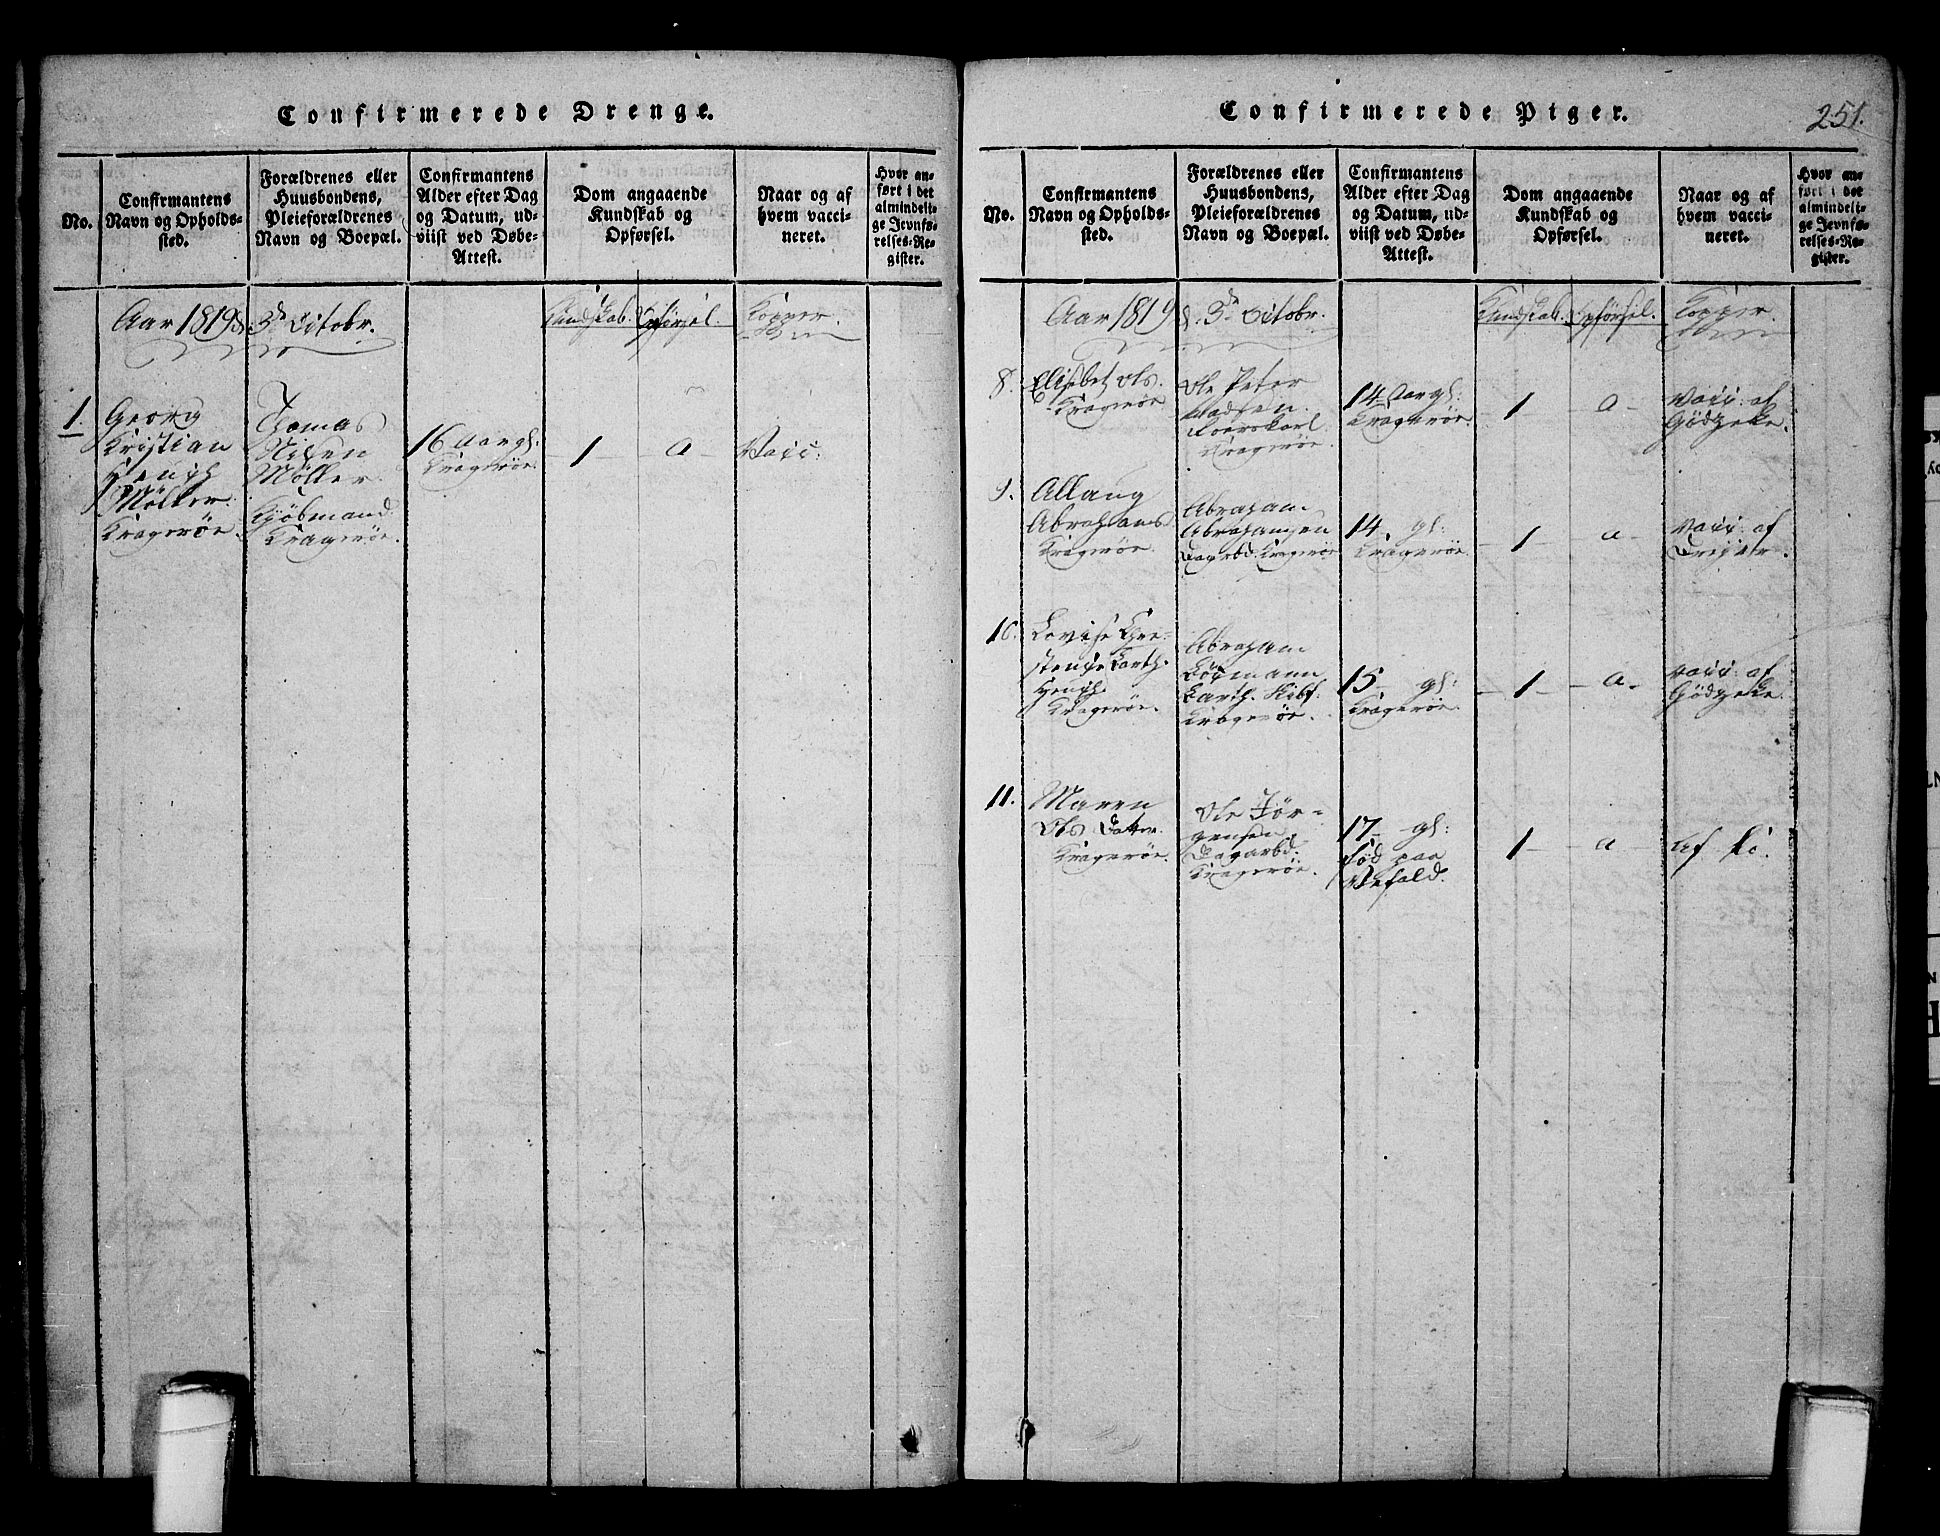 Confirmerede Drenge.
No.
Confirmantens
Navn og Opholds-
sted.
Forældrenes eller
Huusbondens,
Pleieforældrenes
Navn og Boepæl.
Confirmantens
Alder efter Dag
og Datum, ud-
viist ved Døbe-
Attest.
Dom angaaende
Kundskab og
Opførsel.
Naar og af
hvem vacci-
neret.
Hvor an-
ført i det
almindeli-
ge Jevnfø-
relses-Re-
gister.
Aar 1819 d. 3d Octobr.
Kundskab. Opførsel.
Kopper.
1.
Georg
Kristian
Heuch
Möller.
Kragerøe.
Thomas
Nilsen
Möller.
Kjöbmand
Kragerøe.
16 Aar gl:
Kragerøe.
1
a
Vacc:
Confirmerede Piger.
251.
No.
Confirmantens
Navn og Opholds-
sted.
Forældrenes eller
Huusbondens,
Pleieforældrenes
Navn og Boepæl.
Confirmantens
Alder efter Dag
og Datum, ud-
viist ved Døbe-
Attest.
Dom angaaende
Kundskab og
Opførsel.
Naar og af
hvem vacci-
neret.
Hvor an-
ført i det
almindeli-
ge Jevnfø-
relses-Re-
gister.
Aar 1819 d. 3d Octobr.
Kundskab. Opførsel.
Kopper.
8.
Elisebet Ols.
Kragerøe
Ole Peter
Madsen.
Kragerøe.
14 Aar gl:
Kragerøe.
1
a
Vacc: af
Gödheke.
9.
Allang
Abrahams
Kragerøe.
Abraham
Abrahamsen
Dagarbd. Kragerøe
14 gl:
Kragerøe.
1
a
Vacc: af
10.
Lovise
Barth.
Heuch.
Kragerøe.
Abraham
Barth. Skibf.
Kragerøe.
15 gl:
Kragerøe.
1
a
Vacc: af
Gödheke.
11.
Maren
Ols Datter.
Kragerøe.
Ole Jör-
gensen
Dagarbd.
Kragerøe.
17 gl:
Född paa
Vefald.
1
a
Af